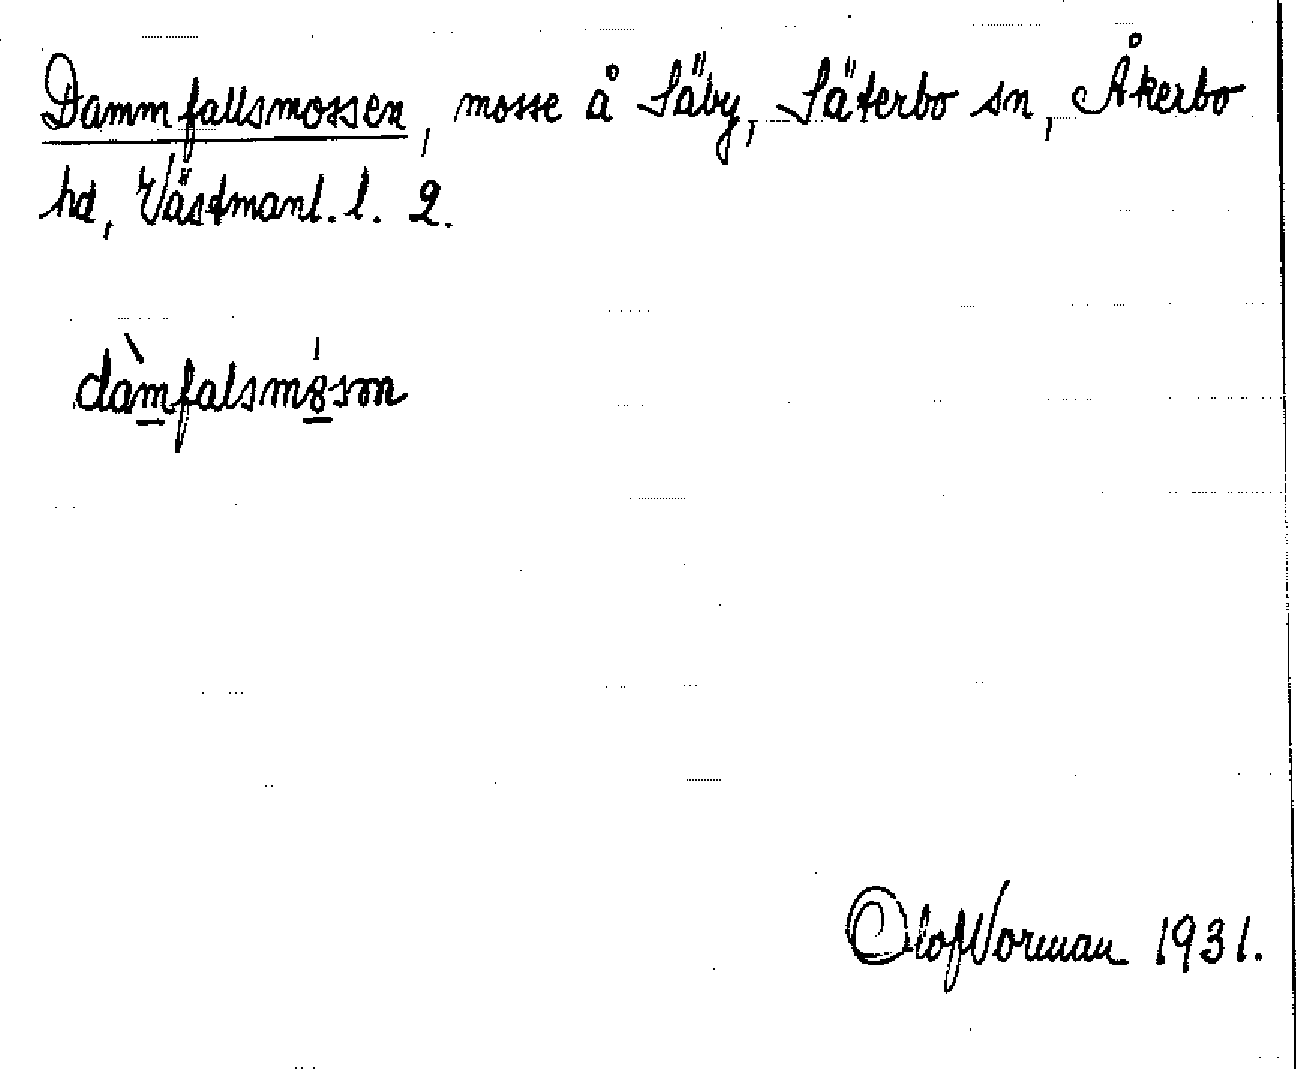 Dammfallsmossen, mosse å Säby, Säterbo sn, Åkerbo
hd, Västmanl. l. 2.
dàmfalsmo̍sɷn
Olof Norman 1931.